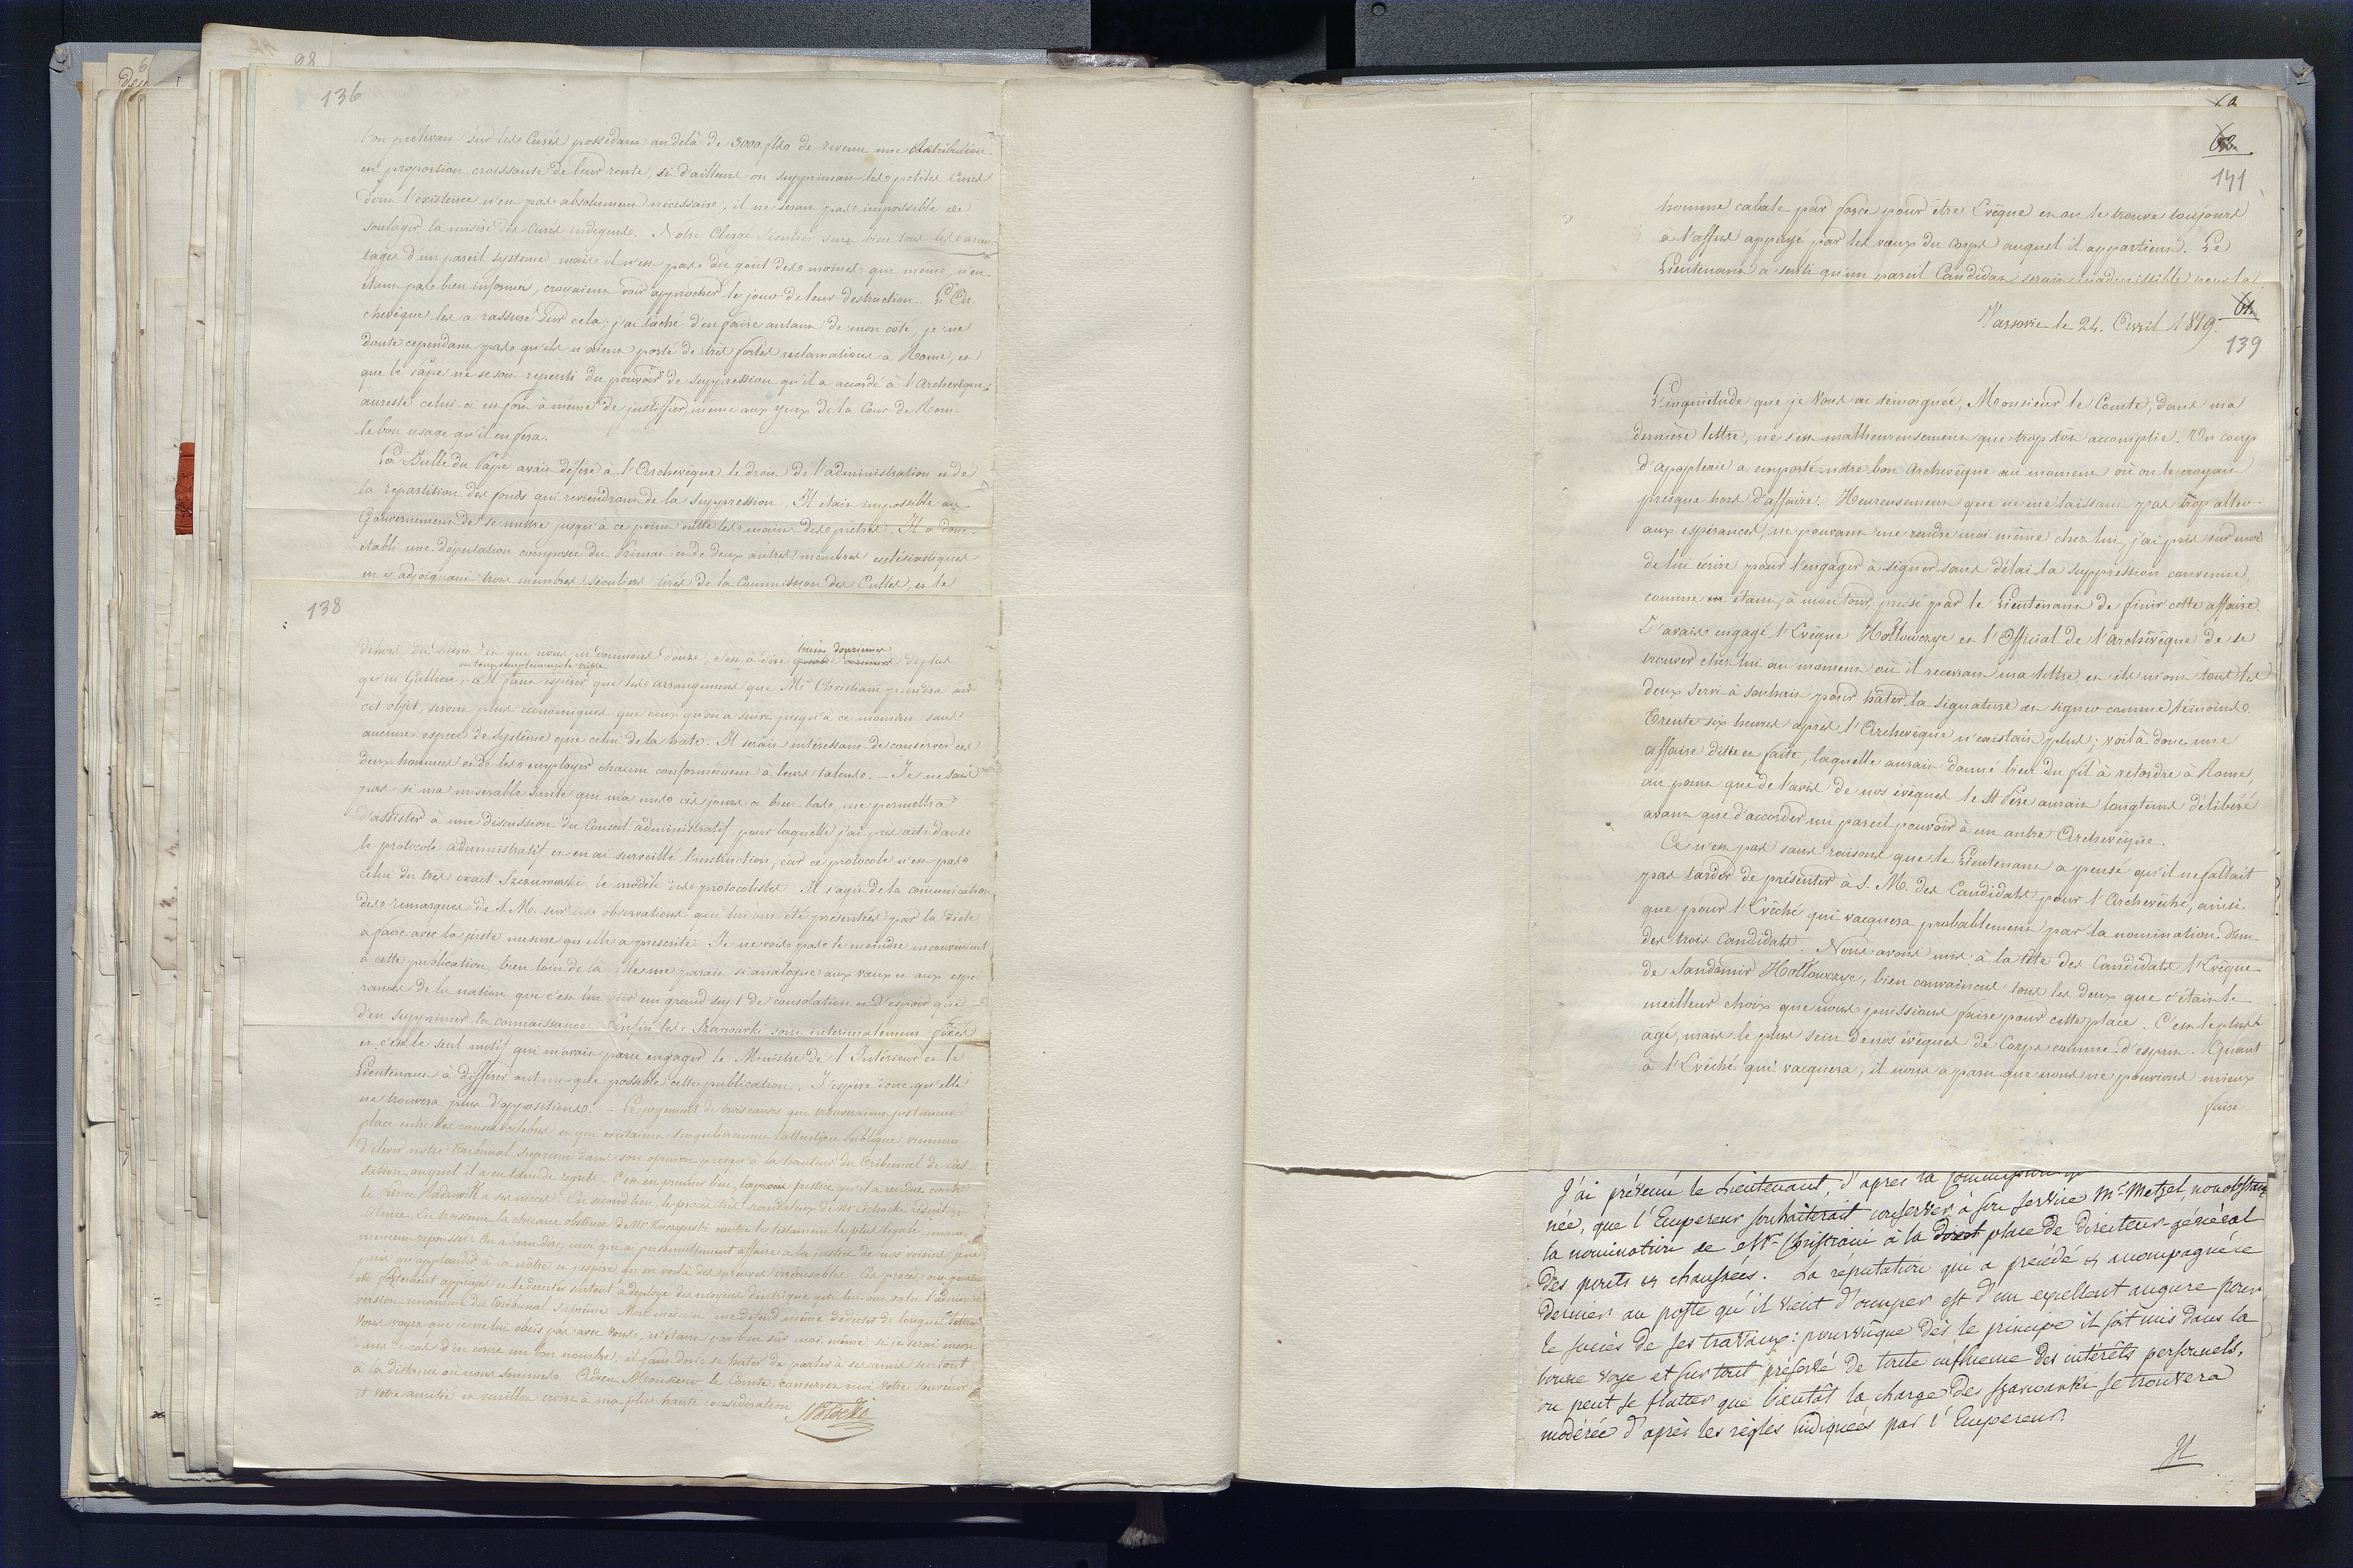 98
136
l'on prélevait sur les Curés possédant au delà de 3000 flto de revenu une rétribution
en proportion croissante de leur rente, si d'ailleurs on supprimait les petites Cures
dont l'existence n'est pas absolument nécessaire, il ne serait pas impossible de
soulager la misère des Curés indigents. Notre Clergé séculier sent bien tous les avan-
tages d'un pareil systeme mais il n'est pas du goût des moines qui même n'en
étant pas bien informés, croyaient voir approcher le jour de leur destruction. L'Ar-
chevêque les a rassuré sur cela; j'ai tâché d'en faire autant de mon côté, je ne
doute cependant pas qu'ils n'aient porté de très fortes réclamations à Rome, et
que le Pape ne se soit repenti du pouvoir de suppression qu'il a accordé à l'Archevêque;
aureste celui-ci est fort à même de justifier même aux yeux de la Cour de Rome
le bon usage qu'il en fera.
La Bulle du Pape avait déféré a l'Archevêque le droit de l'administration et de
la repartition des fonds qui reviendront de la suppression. Il était impossible au
Gouvernement de se mettre jusqu'à ce point entre les mains des prêtres. Il a donc
établi une députation composée du Primat et de deux autres membres ecclésiastiques
en y adjoignant trois membres séculiers tirés de la Commission des Cultes, et le
138
dehors du Bureau et que nous en connaissons douze, c'est à dire
qu'en Gallicie, il faut espérer que les arrangemens que Mr Christiani prendra sur
cet objet, seront plus économiques que ceux qu'on a suivi jusqu'à ce moment sans
aucune espèce de système que celui de la hâte. Il serait intéressant de conserver ces
deux hommes et de les employer chacun conformément à leurs talents. — Je ne sais
pas si ma misérable santé qui m'a mis ces jours-ci bien bas, me permettra
d'assister à une discussion du Conseil administratif pour laquelle j'ai pris acte dans
le protocole administratif et en ai surveillé l'instruction, car ce protocole n'est pas
celui du très exact Szczurowski le modèle des protocolistes. Il s'agit de la communication
des remarques de S. M. sur les observations qui lui ont été présentées par la Diète
à faire avec la juste mesure qu'elle a prescrite. Je ne vois pas le moindre inconvénient
à cette publication, bien loin de là elle me parait si analogue aux vœux et aux espé-
rances de la nation, que c'est lui ôter un grand sujet de consolation et d'espoir que
d'en supprimer la connaissance. Enfin les Szarwarki sont intérimalement fixés
et c'est le seul motif qui m'avait paru engager le Ministre de l'Intérieur et le
Lieutenant à différer autant que possible cette publication. J'espère donc qu'elle
ne trouvera plus d'oppositions. — Le jugement de trois causes qui trouveraient justement
place entre les causes célèbres et qui excitaient singulièrement l'attention publique viennent
d'élever notre Tribunal Suprême dans son opinion presqu'à la hauteur du Tribunal de Cas-
sation auquel il a eu tant de regrets. C'est en premier lieu, la justice qu'il a rendue contre
le Prince Radziwill a ses nièces. En second lieu, le procès très scandaleux de Mr Cichocki
contre le testament le plus légal
nement repoussée. On a beau dire, moi qui ai personnellement affaire a la justice de nos voisins, je ne
puis qu'applaudir à la notre et j'espère qu'en voilà des preuves irrécusables. Ces procès ont pourtant
été fortement appuyés et le dernier surtout a déployé des moyens d'intrigue qui lui ont valu l'animad-
version unanime du Tribunal Suprême. Mon médecin me défend même de dicter de longues lettres
Vous voyez que je ne lui obéis pas avec vous, n'étant pas bien sûr moi même si je serai encore
dans le cas d'en écrire un bon nombre, il faut donc se hâter de parler à ses amis surtout
à la distance où nous sommes. Adieu Monsieur le Comte, conservez moi votre souvenir
et votre amitié et veuillez croire à ma plus haute considération
SPotocki
141
homme cabale par force pour être Evêque et on le trouve toujours
à l'affut appuyé par les vœux du Corps auquel il appartient. Le
Lieutenant a senti qu'un pareil Candidat serait inadmissible pour la
Varsovie le 24. Avril 1819.
139
L'inquiétude que je Vous ai témoignée, Monsieur le Comte, dans ma
dernière lettre, ne s'est malheureusement que trop tôt accomplie. Un coup
d'apoplexie a emporté notre bon Archevêque au moment où on le croyait
presque hors d'affaire. Heureusement que ne me laissant pas trop aller
aux espérances, ne pouvant me rendre moi même chez lui, j'ai pris sur moi
de lui écrire pour l'engager à signer sans délai la suppression convenue,
comme en étant, à mon tour, pressé par le Lieutenant de finir cette affaire.
J'avais engagé l'Evêque Hołłowczyc et l'Official de l'Archevêque de se
trouver chez lui au moment où il recevrait ma lettre, et ils m'ont tous les
deux servi à souhait pour hâter la signature et signer comme témoins.
Trente six heures après l'Archevêque n'existait plus; voilà donc une
affaire dite et faite, laquelle aurait donné bien du fil à retordre à Rome,
au point que de l'avis de nos évêques le St Père aurait longtems délibéré
avant que d'accorder un pareil pouvoir à un autre Archevêque.
Ce n'est pas sans raisons que le Lieutenant a pensé qu'il ne fallait
pas tarder de présenter à S. M. des Candidats pour l'Archevêché, ainsi
que pour l'Evêché qui vacquera probablement par la nomination d'un
des trois Candidats. Nous avons mis à la tête des Candidats l'Evêque
de Sandomir Hołłowczyc, bien convaincus tous les deux que c'était le
meilleur choix que nous puissions faire pour cette place. C'est le plus
agé, mais le plus sein de nos évêques de Corps comme d'esprit. Quant
à l'Evêché qui vacquera, il nous a paru que nous ne pouvions mieux
faire
J'ai prévenu le Lieutenant, d'après la
née, que l'Empereur souhaiterait conserver à son service Mr Metzel, nonobstant
la nomination de Mr Christiani à la place de Directeur-général
des ponts et chaussées. La réputation qui a précédé et accompagné ce
dernier au poste qu'il vient d'occuper est d'un excellent augure pour
le succès de ses travaux: pourvûque dès le principe il soit mis dans la
bonne voye et surtout préservé de toute influence des intérêts personnels,
on peut se flatter que bientôt la charge des szarwarki se trouvera
modérée d'après les règles indiquées par l'Empereur.